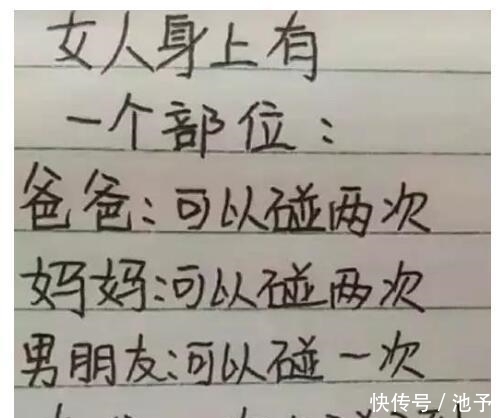 女人身上有
一个部位：
爸爸：可以碰两次
妈妈：可以碰两次
男朋友：可以碰一次
快传号／池予